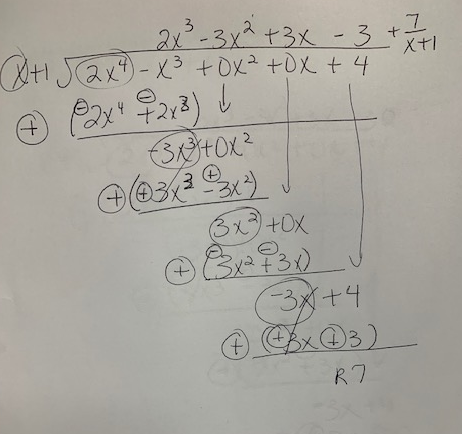 2x³ - 3x² + 3x - 3 + 7/(x+1)
x+1 √ 2x⁴ - x³ + 0x² + 0x + 4
⊕ (⊖2x⁴ ⊖+2x³) ↓
-3x³ + 0x²
⊕ (⊕3x³ ⊕-3x²)
3x² + 0x
⊕ (⊖3x² ⊖+3x)
-3x + 4
⊕ (⊕3x ⊕ 3)
R7